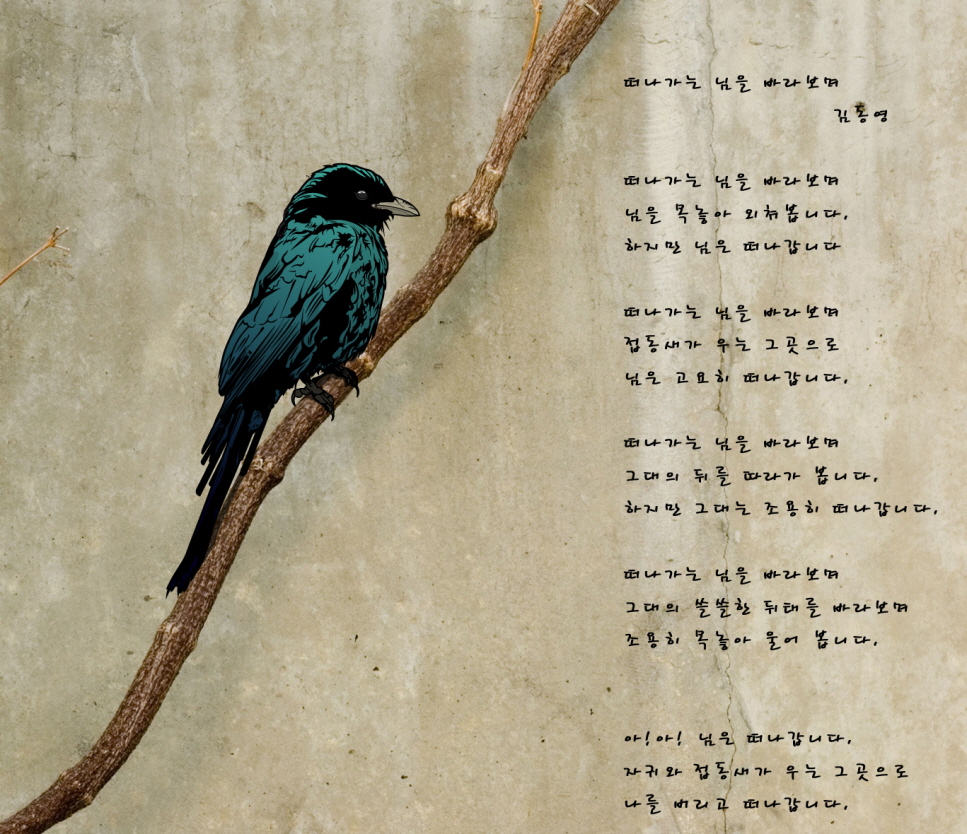 떠나가는 님을 바라보며
김동영
떠나가는 님을 바라보며
님을 목놓아 외쳐봅니다.
하지만 님은 떠나갑니다
떠나가는 님을 바라보며
접동새가 우는 그곳으로
님은 고요히 떠나갑니다.
떠나가는 님을 바라보며
그대의 뒤를 따라가 봅니다.
하지만 그대는 조용히 떠나갑니다.
떠나가는 님을 바라보며
그대의 쓸쓸한 뒤태를 바라보며
조용히 목놓아 울어 봅니다.
아!아! 님은 떠나갑니다.
자귀와 접동새가 우는 그곳으로
나를 버리고 떠나갑니다.